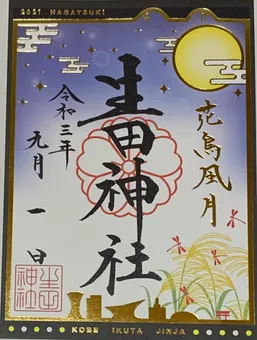 2021 NAGATSUKI
花鳥風月
生田神社
令和三年
九月一日
生田神社
KOBE IKUTA JINJA